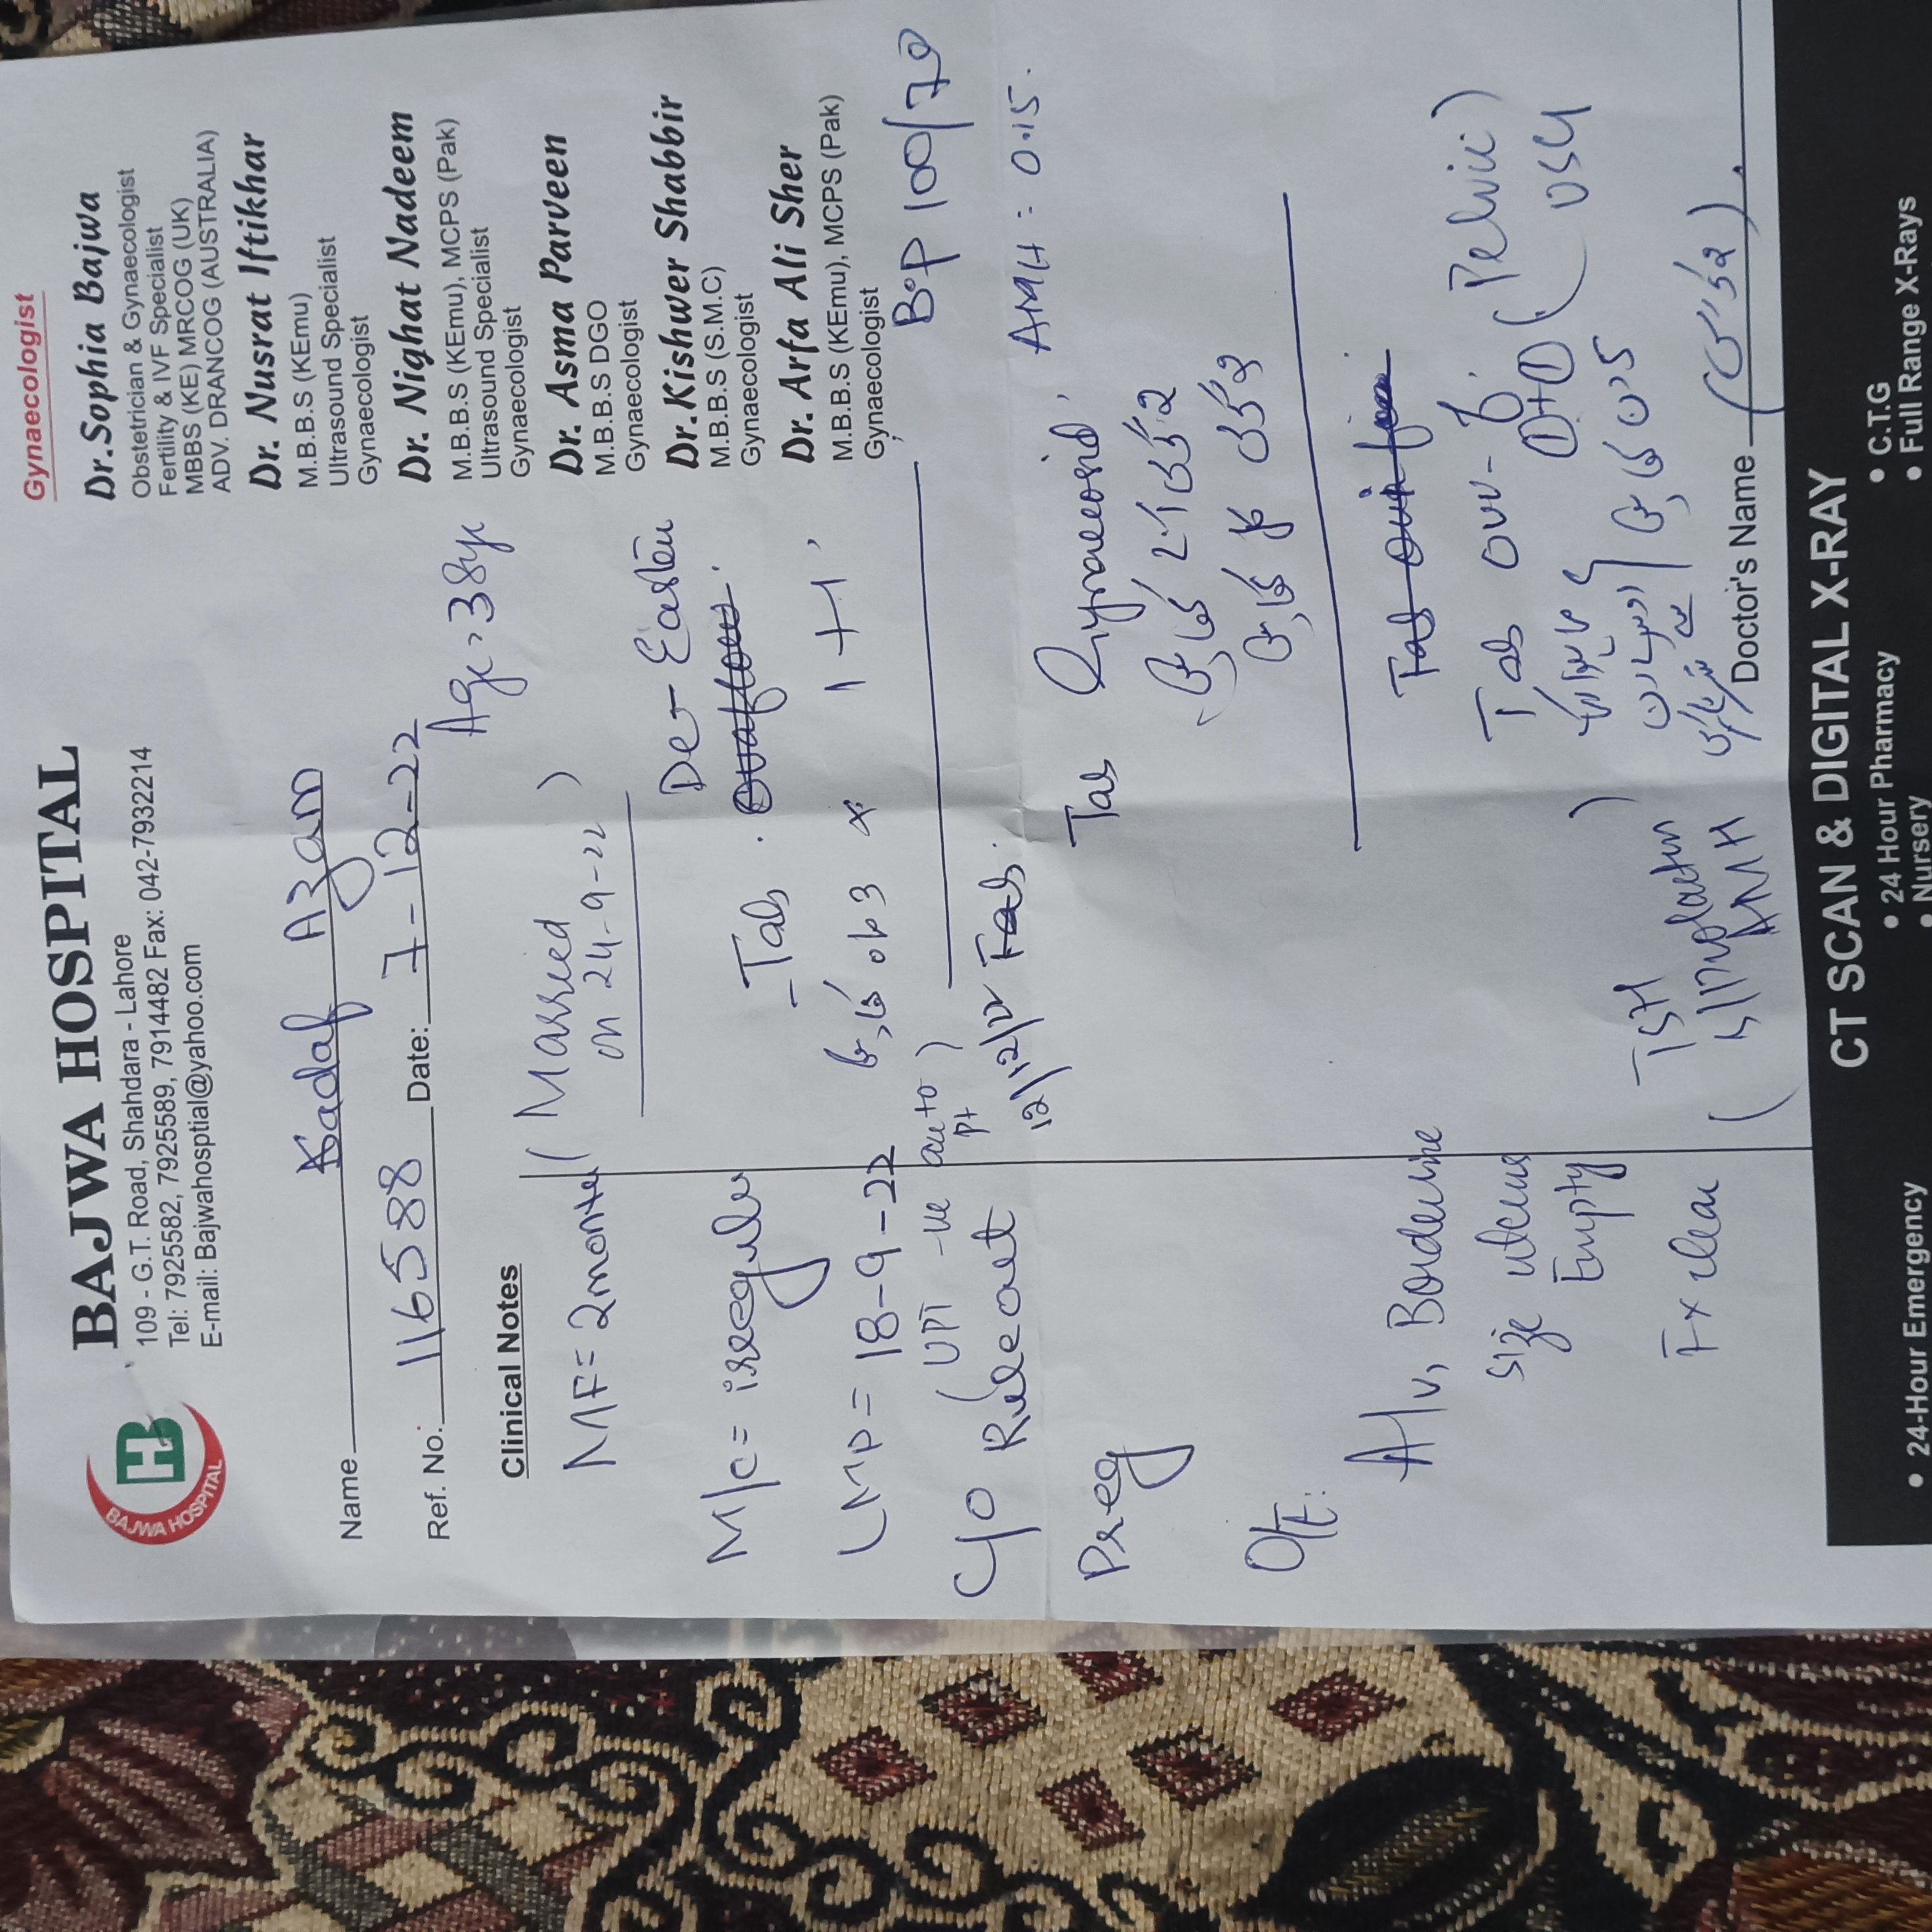 BAJWA HOSPITAL
109 - G.T. Road, Shahdara - Lahore
Tel: 7925582, 7925589, 7914482 Fax: 042-7932214
E-mail: Bajwahosptial@yahoo.com
HB
BAJWA HOSPITAL
Gynaecologist
Dr.Sophia Bajwa
Obstetrician & Gynaecologist
Fertility & IVF Specialist
MBBS (KE) MRCOG (UK)
ADV. DRANCOG (AUSTRALIA)
Dr. Nusrat Iftikhar
M.B.B.S (KEmu)
Ultrasound Specialist
Gynaecologist
Dr. Nighat Nadeem
M.B.B.S (KEmu), MCPS (Pak)
Ultrasound Specialist
Gynaecologist
Dr. Asma Parveen
M.B.B.S DGO
Gynaecologist
Dr.Kishwer Shabbir
M.B.B.S (S.M.C)
Gynaecologist
Dr. Arfa Ali Sher
M.B.B.S (KEmu), MCPS (Pak)
Gynaecologist
Name Sadaf Azam
Ref. No. 116588 Date: 7-12-22
Age 38yr
Clinical Notes
MF = 2months (Married
on 24-9-22)
M/C = irregular
LMP = 18-9-22
UPT -ve
acc to
pt)
C/O Rule out
Preg
O/E:
A/v, Borderline
size uterus
Empty
Fx clear
Tab.
1+1
B.P 100/70
12/12/22 Tab.
AMH = 0.15.
Tab Gynaecosid
Tab
Tab
(Pelvic)
USG
(TSH
S/Prolactin
AMH)
Doctor's Name
CT SCAN & DIGITAL X-RAY
• 24-Hour Emergency
• 24 Hour Pharmacy
• Nursery
• C.T.G
• Full Range X-Rays